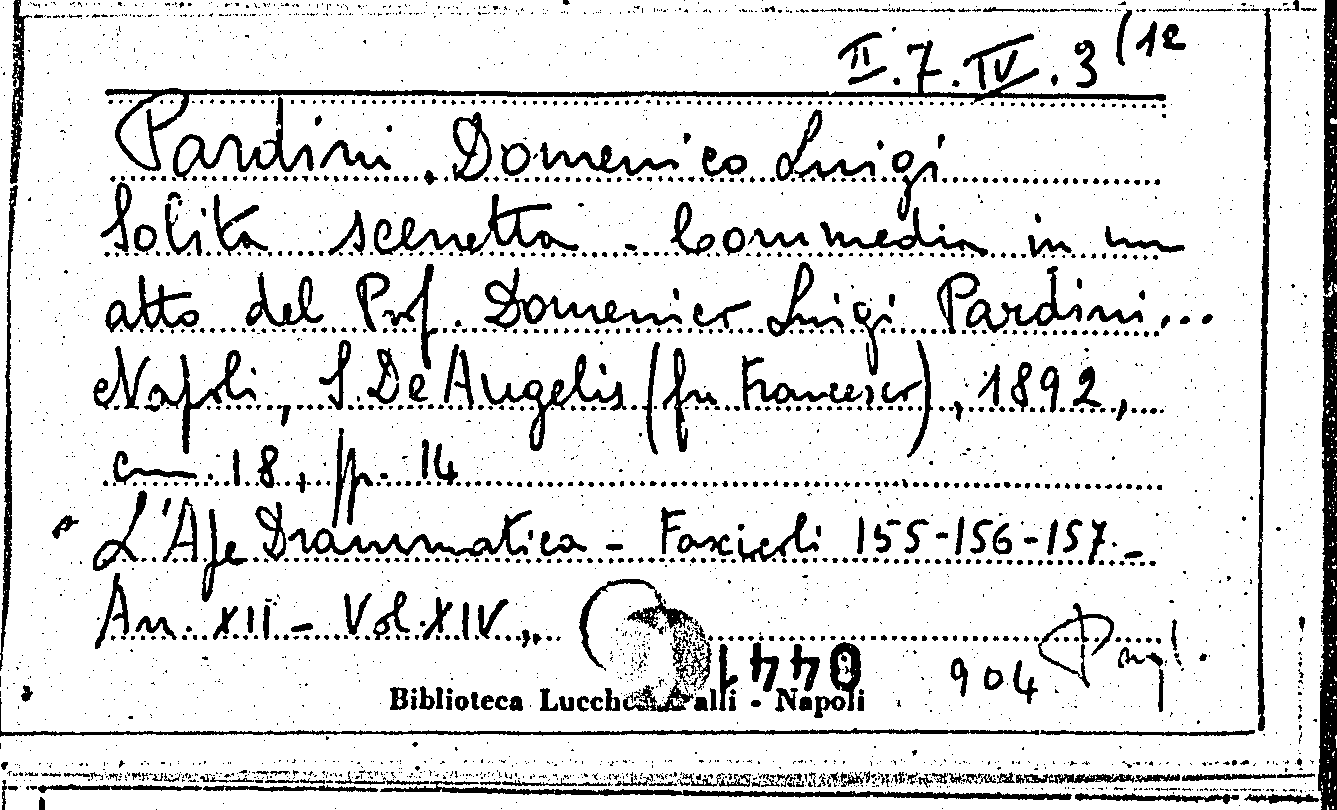 II. 7. IV. 3 (12
Pardini, Domenico Luigi
Solita scenetta - Commedia in un
atto del Prof. Domenico Luigi Pardini...
Napoli, S. De Angelis (fu Francesco), 1892,
cm. 18, pp. 14
" L'Ape Drammatica - Fascicoli 155-156-157 -
An. XII - Vol. XIV "
0441
904
Biblioteca Lucchesi Palli - Napoli